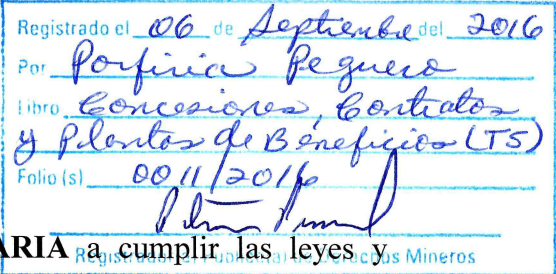 Registrado el 06 de Septiembre del 2016
Por Porfiria Peguero
Libro Concesiones, Contratos
y Plantas de Beneficios (TS)
Folio (s) 0011/2016
ARIA a cumplir las leyes y
Registrador Público de Derechos Mineros